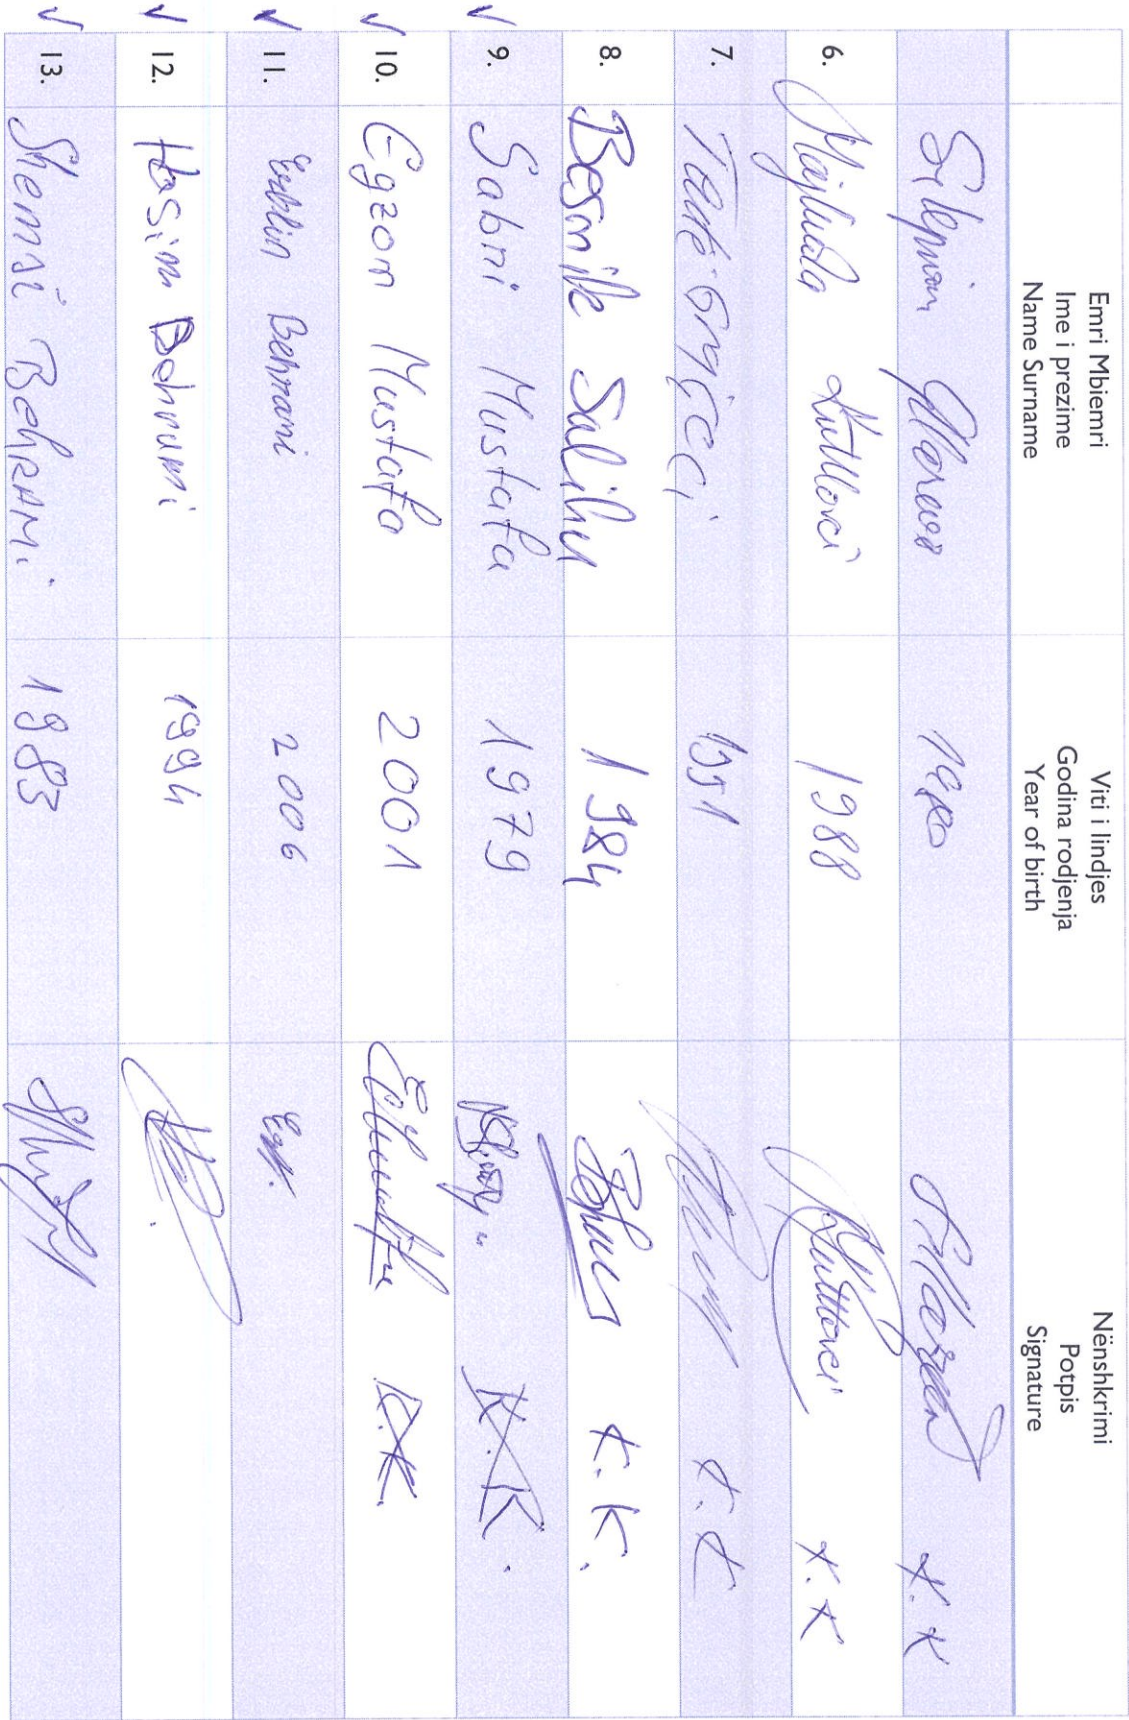 Emri Mbiemri
Ime i prezime
Name Surname
Viti i lindjes
Godina rodjenja
Year of birth
Nënshkrimi
Potpis
Signature
1980 K.K
6. Majlinda Kutllovci 1988 Kutllovci K.K
7. 1951 K.K
8. Besnik Salihu 1984 K.K.
✓ 9. Sabri Mustafa 1979 K.K.
✓ 10. Egzon Mustafa 2001 K.K.
✓ 11. Behrami 2006
✓ 12. Hasim Bahrami 1994
✓ 13. Shemsi BehRAMi. 1983